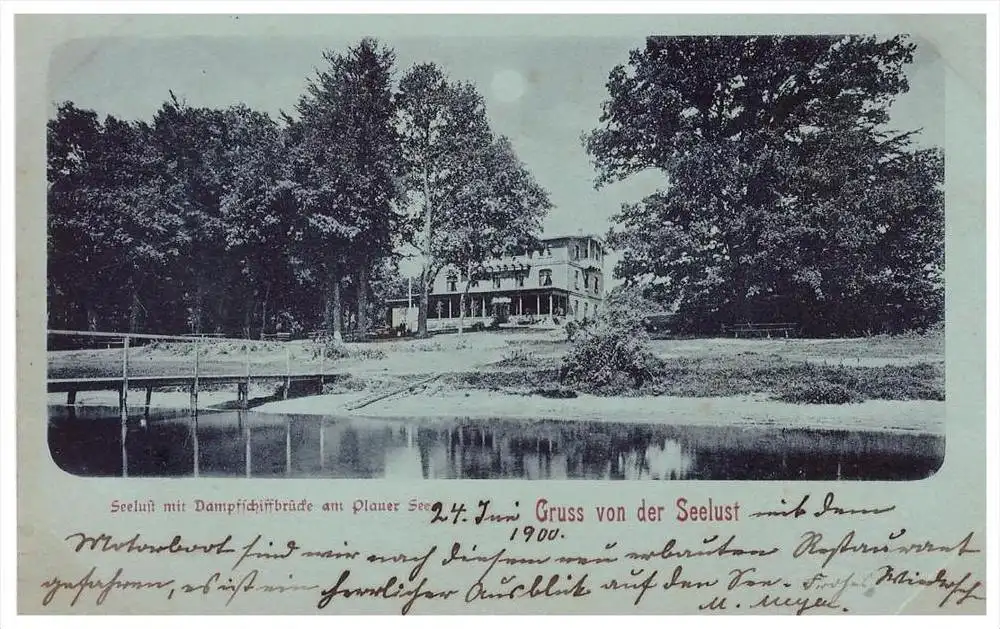 Seelust mit Dampfschiffbrücke am Plauer See
Gruss von der Seelust
24. Juni 1900. mit dem
Motorboot sind wir nach diesem neu erbauten Restaurant
gefahren, es ist ein herrlicher Ausblick auf den See. Frohes Wiedersehn
M. Meyer.